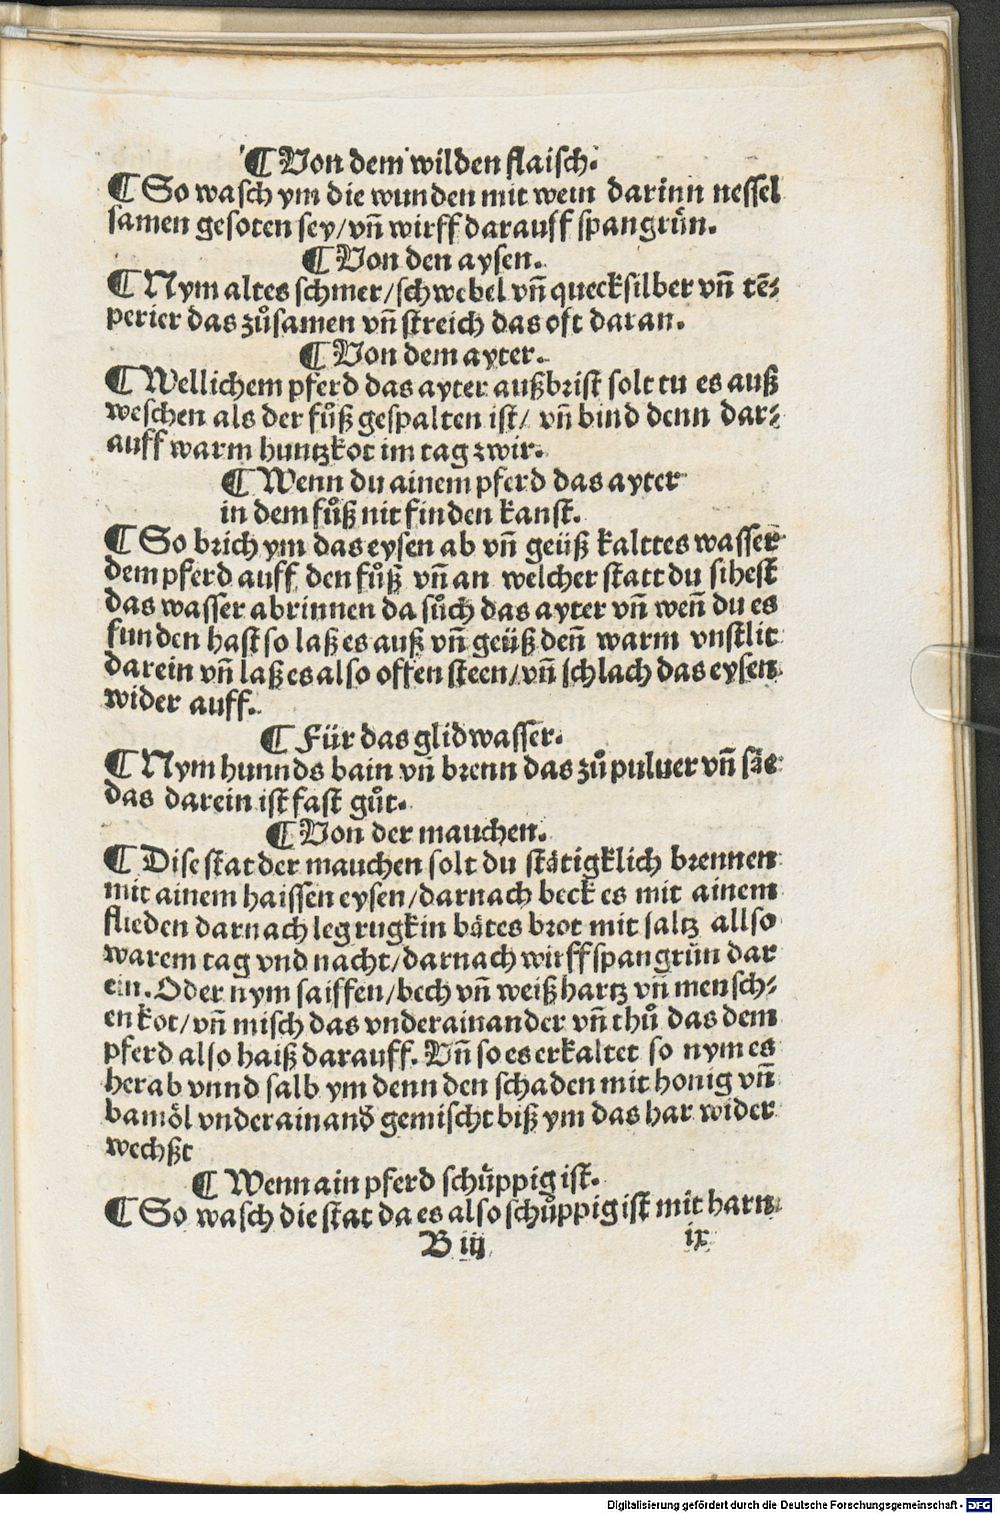 ¶ Von dem wilden flaisch.
¶ So wasch ym die wunden mit wein darinn nessel
samen gesoten sey/vn̄ wirff darauff spangruͤn.
¶ Von den aysen.
¶ Nym altes schmer/schwebel vn̄ quecksilber vn̄ tē⸗
perier das zuͦsamen vn̄ streich das oft daran.
¶ Von dem ayter.
¶ Wellichem pferd das ayter außbrist solt tu es auß
weschen als der fuͦß gespalten ist/ vn̄ bind denn dar⸗
auff warm huntzkot im tag zwir.
¶ Wenn du ainem pferd das ayter
in dem fuͦß nit finden kanst.
¶ So brich ym das eysen ab vn̄ geüß kalttes wasser
dem pferd auff den fuͦß vn̄ an welcher statt du sihest
das wasser abrinnen da suͦch das ayter vn̄ wen̄ du es
funden hast so laß es auß vn̄ geüß den̄ warm vnstlit
darein vn̄ laß es also offen steen/vn̄ schlach das eysen
wider auff.
¶ Für das glidwasser.
¶ Nym hunnds bain vn̄ brenn das zuͦ puluer vn̄ säe
das darein ist fast guͦt.
¶ Von der mauchen.
¶ Dise stat der mauchen solt du staͤtigklich brennen
mit ainem haissen eysen/darnach beck es mit ainem
flieden darnach leg rugkin baͤtes brot mit saltz allso
warem tag vnd nacht/darnach wirff spangruͤn dar
ein. Oder nym saiffen/bech vn̄ weiß hartz vn̄ mensch⸗
en kot/vn̄ misch das vnderainander vn̄ thuͦ das dem
pferd also haiß darauff. Vn̄ so es erkaltet so nym es
herab vnnd salb ym denn den schaden mit honig vn̄
bamoͤl vnderainand̕ gemischt biß ym das har wider
wechßt
¶ Wenn ain pferd schuͤppig ist.
¶ So wasch die stat da es also schuͤppig ist mit harn
B iij ix
Digitalisierung gefördert durch die Deutsche Forschungsgemeinschaft - DFG